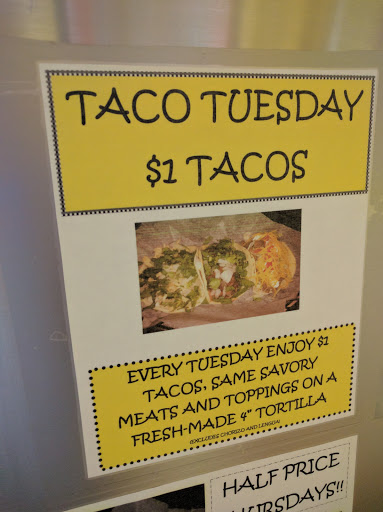 TACO TUESDAY
$1 TACOS
EVERY TUESDAY ENJOY $1
TACOS, SAME SAVORY
MEATS AND TOPPINGS ON A
FRESH-MADE 4" TORTILLA
(EXCLUDES CHORIZO AND LENGUA)
HALF PRICE
URSDAYS!!